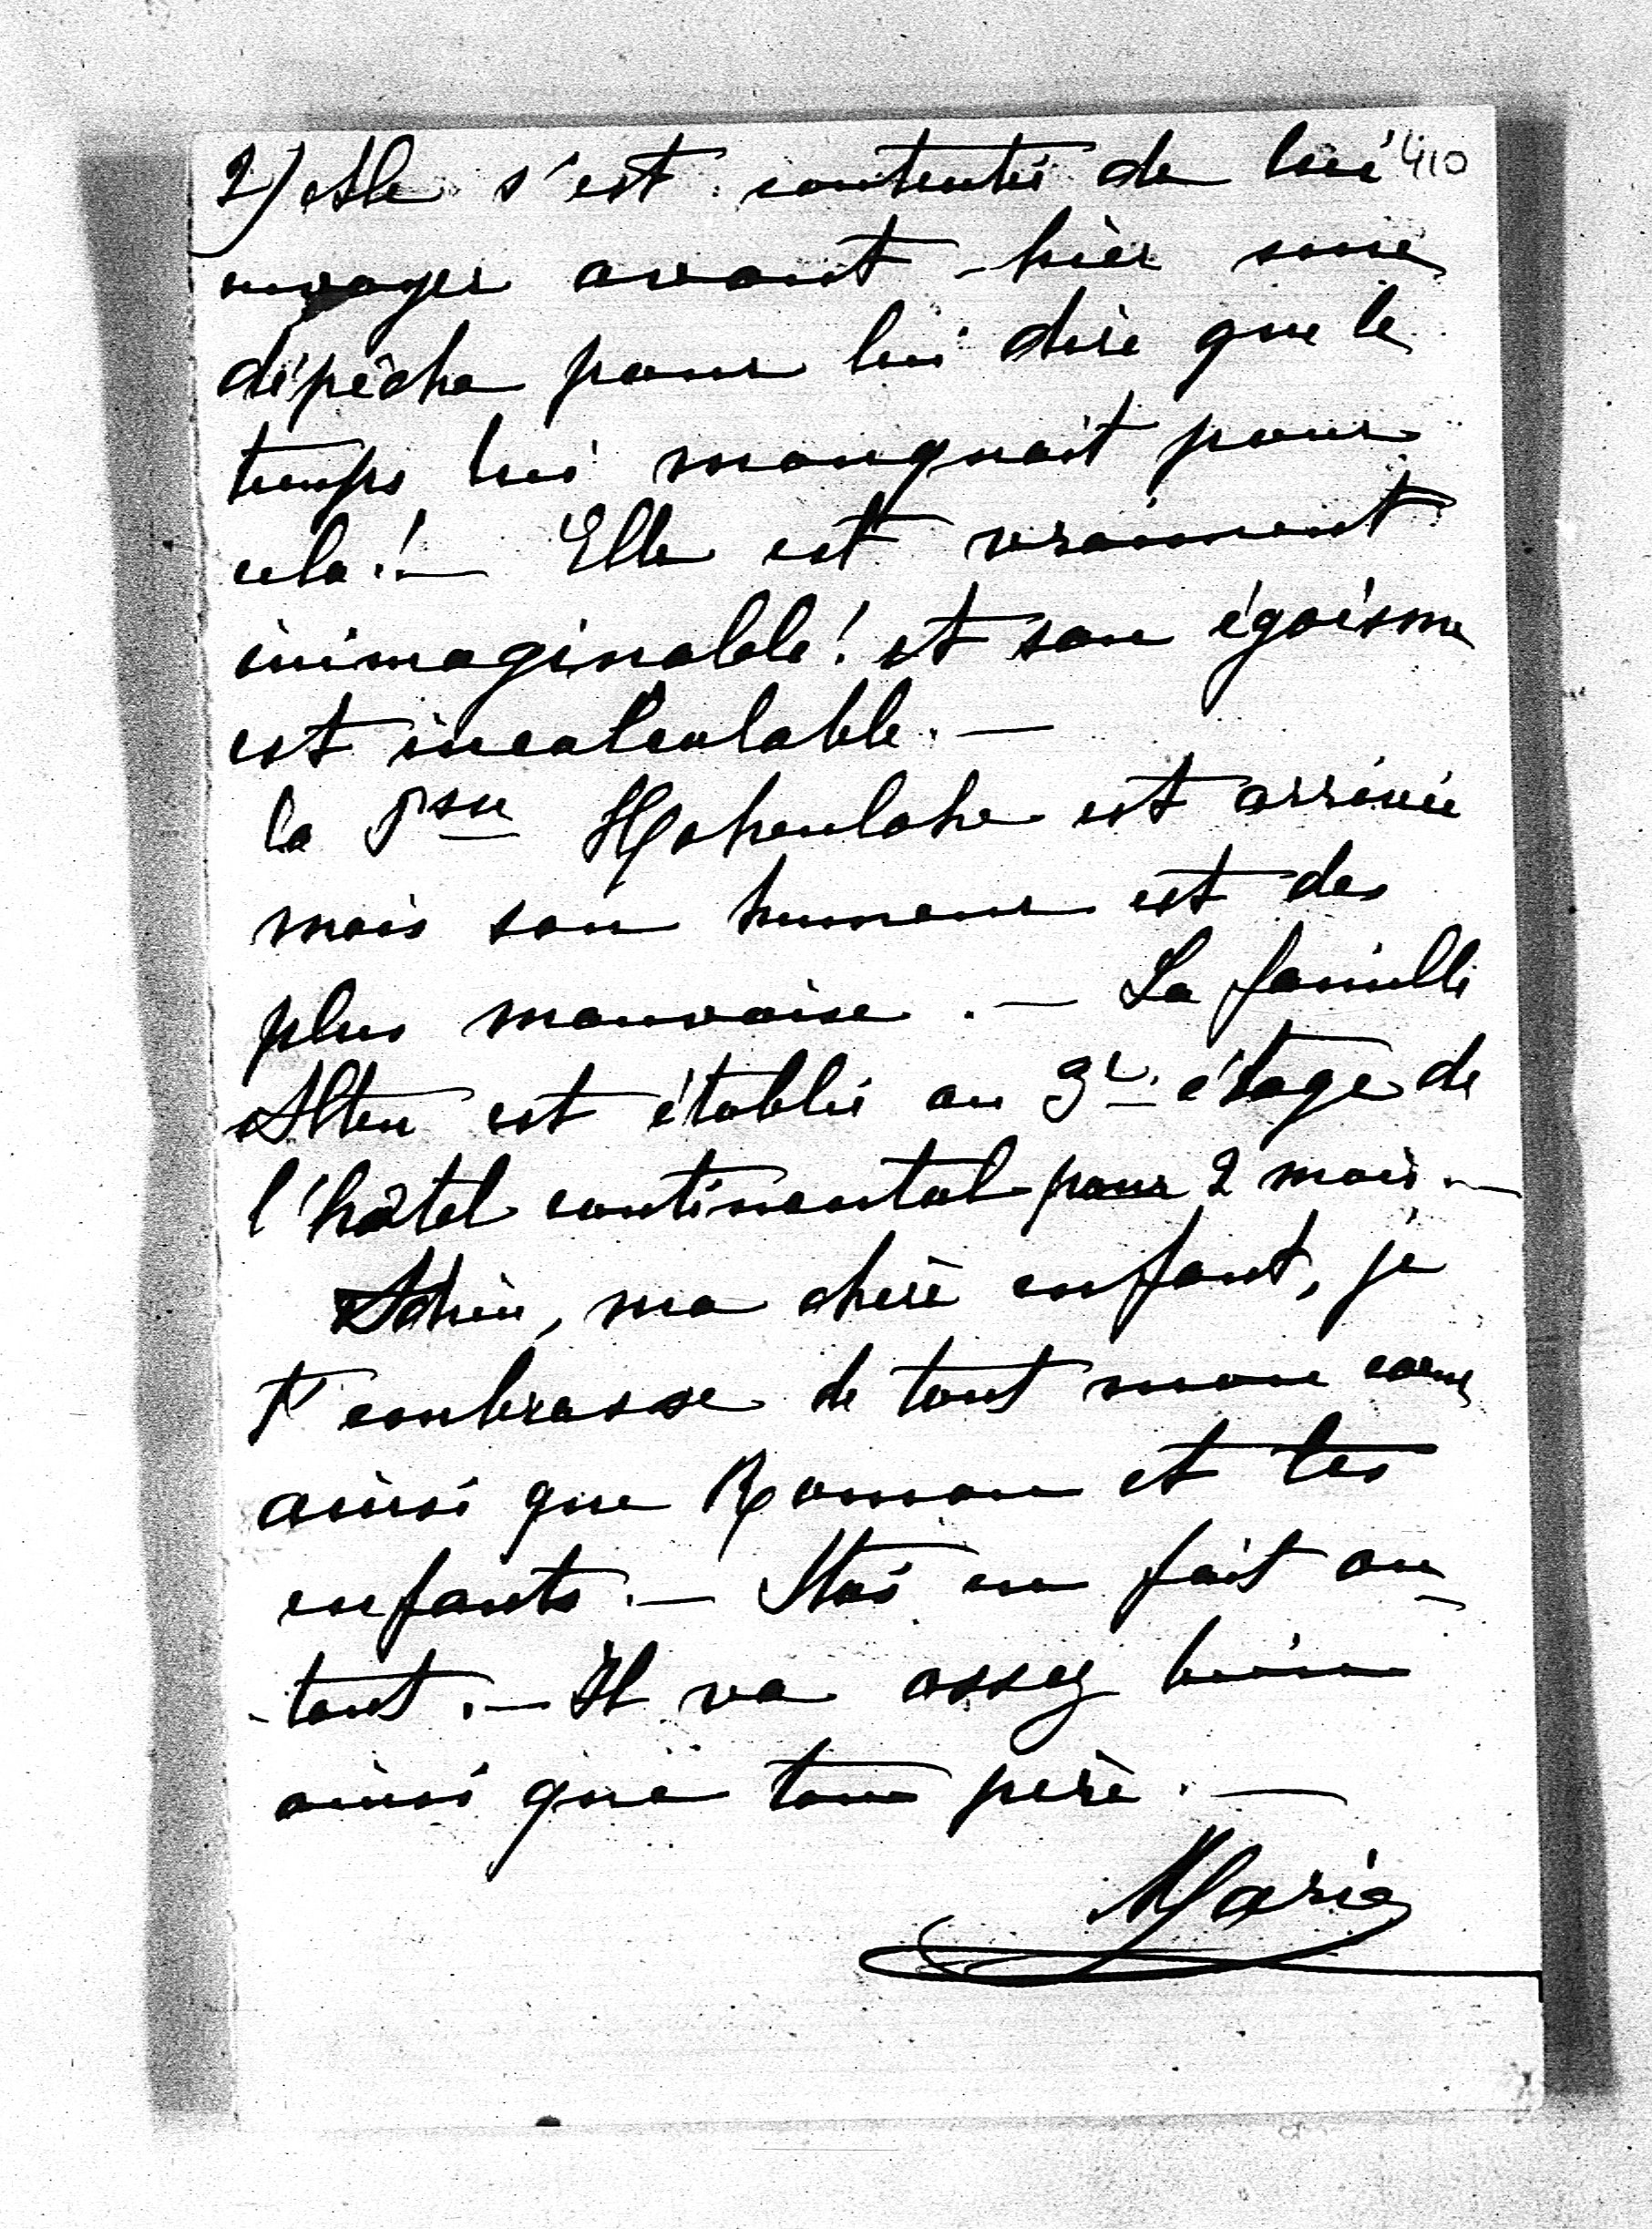 2) elle s'est contentée de lui 410
envoyer avant-hier une
dépêche pour lui dire que le
temps lui manquait pour
cela! — Elle est vraiment
inimaginable! et son égoïsme
est incalculable. —
la Psse Hohenlohe est arrivée
mais son humeur est des
plus mauvaise. — La famille
Alten est établie au 3e étage de
l'hôtel continental pour 2 mois. —
Adieu, ma chère enfant, je
t'embrasse de tout mon cœur
ainsi que Roman et tes
enfants. — Stas en fait au-
-tant. — Il va assez bien
ainsi que ton père. —
Marie